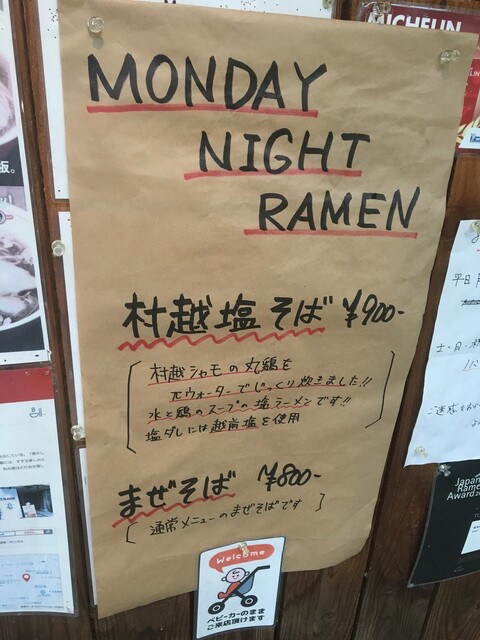 MONDAY
NIGHT
RAMEN
村越塩そば ¥900-
村越シャモの丸鶏を
πウォーターでじっくり炊きました!!
水と鶏のスープの塩ラーメンです!!
塩ダレには越前塩を使用
まぜそば ¥800-
[通常メニューのまぜそばです]
Welcome
ベビーカーのまま
ご来店頂けます
MICHELIN
平日
土・日・祝
ご迷惑
Japan
Ramen
Award